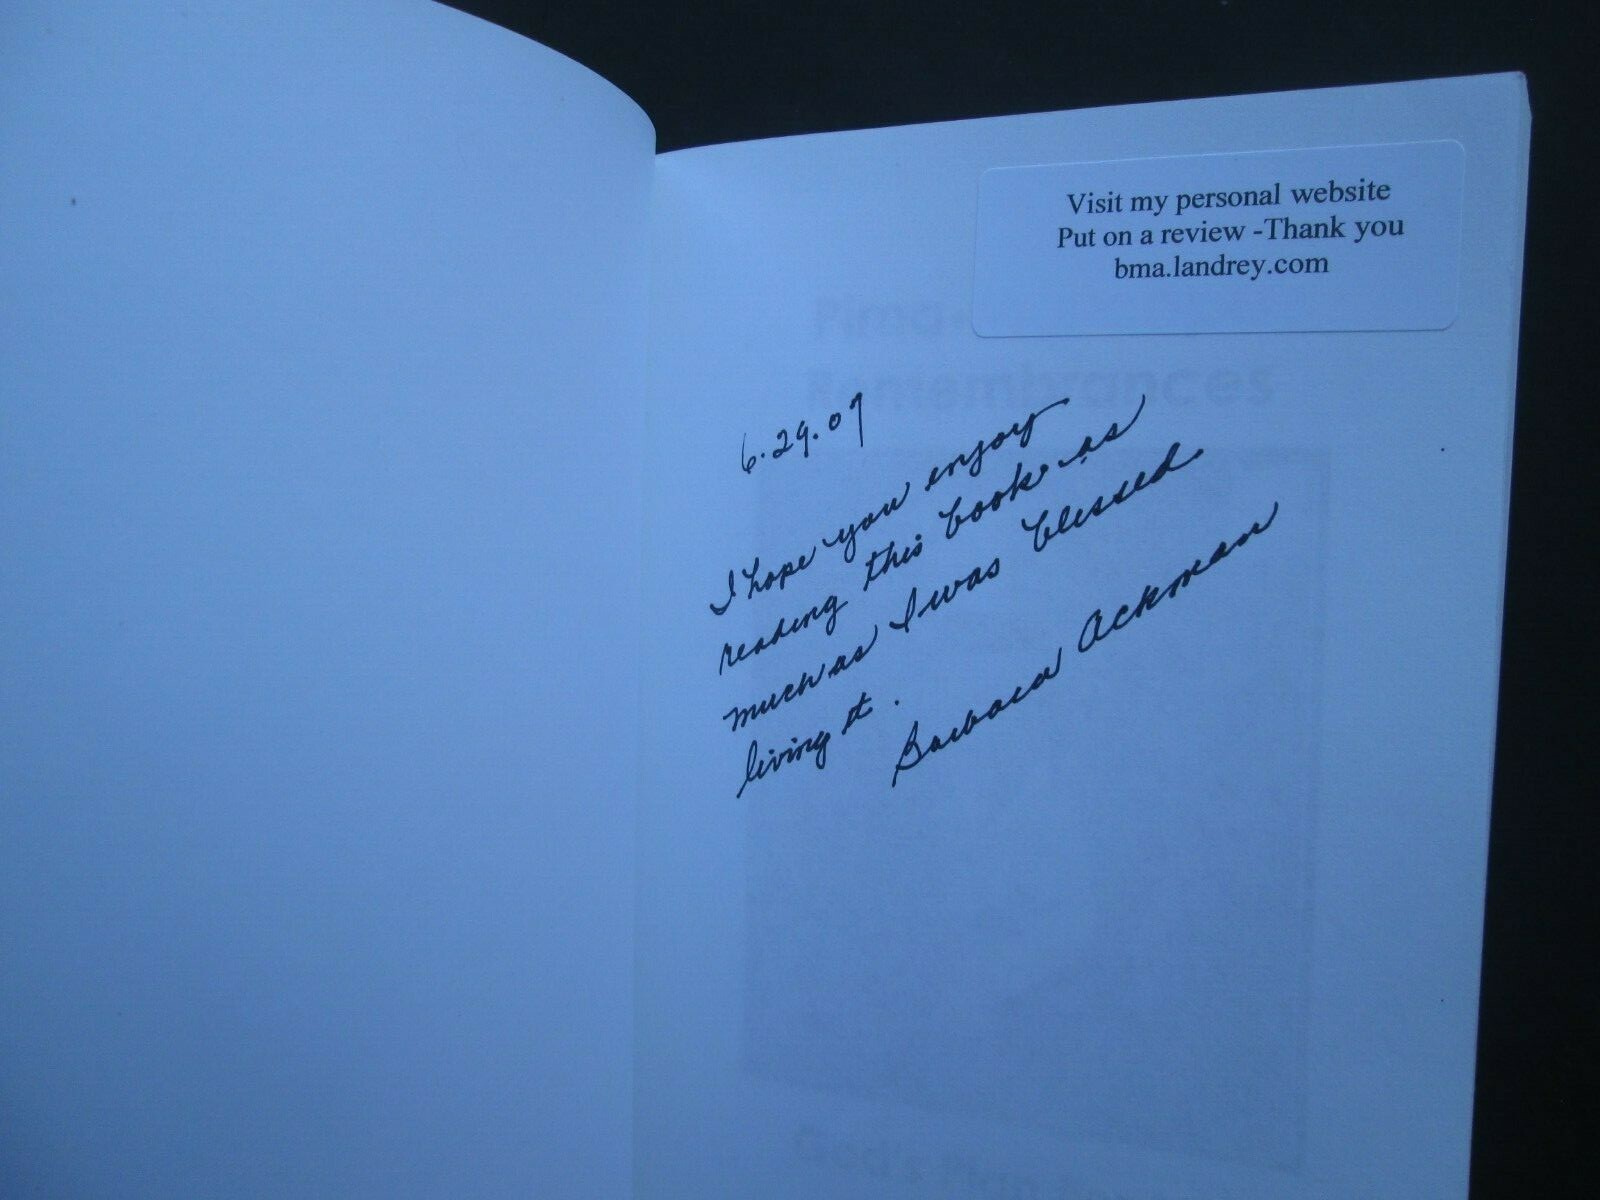 Visit my personal website
Put on a review -Thank you
bma.landrey.com
Remembrances
6.29.07
I hope you enjoy
reading this book as
much as I was blessed
living it.
Barbara Ackman